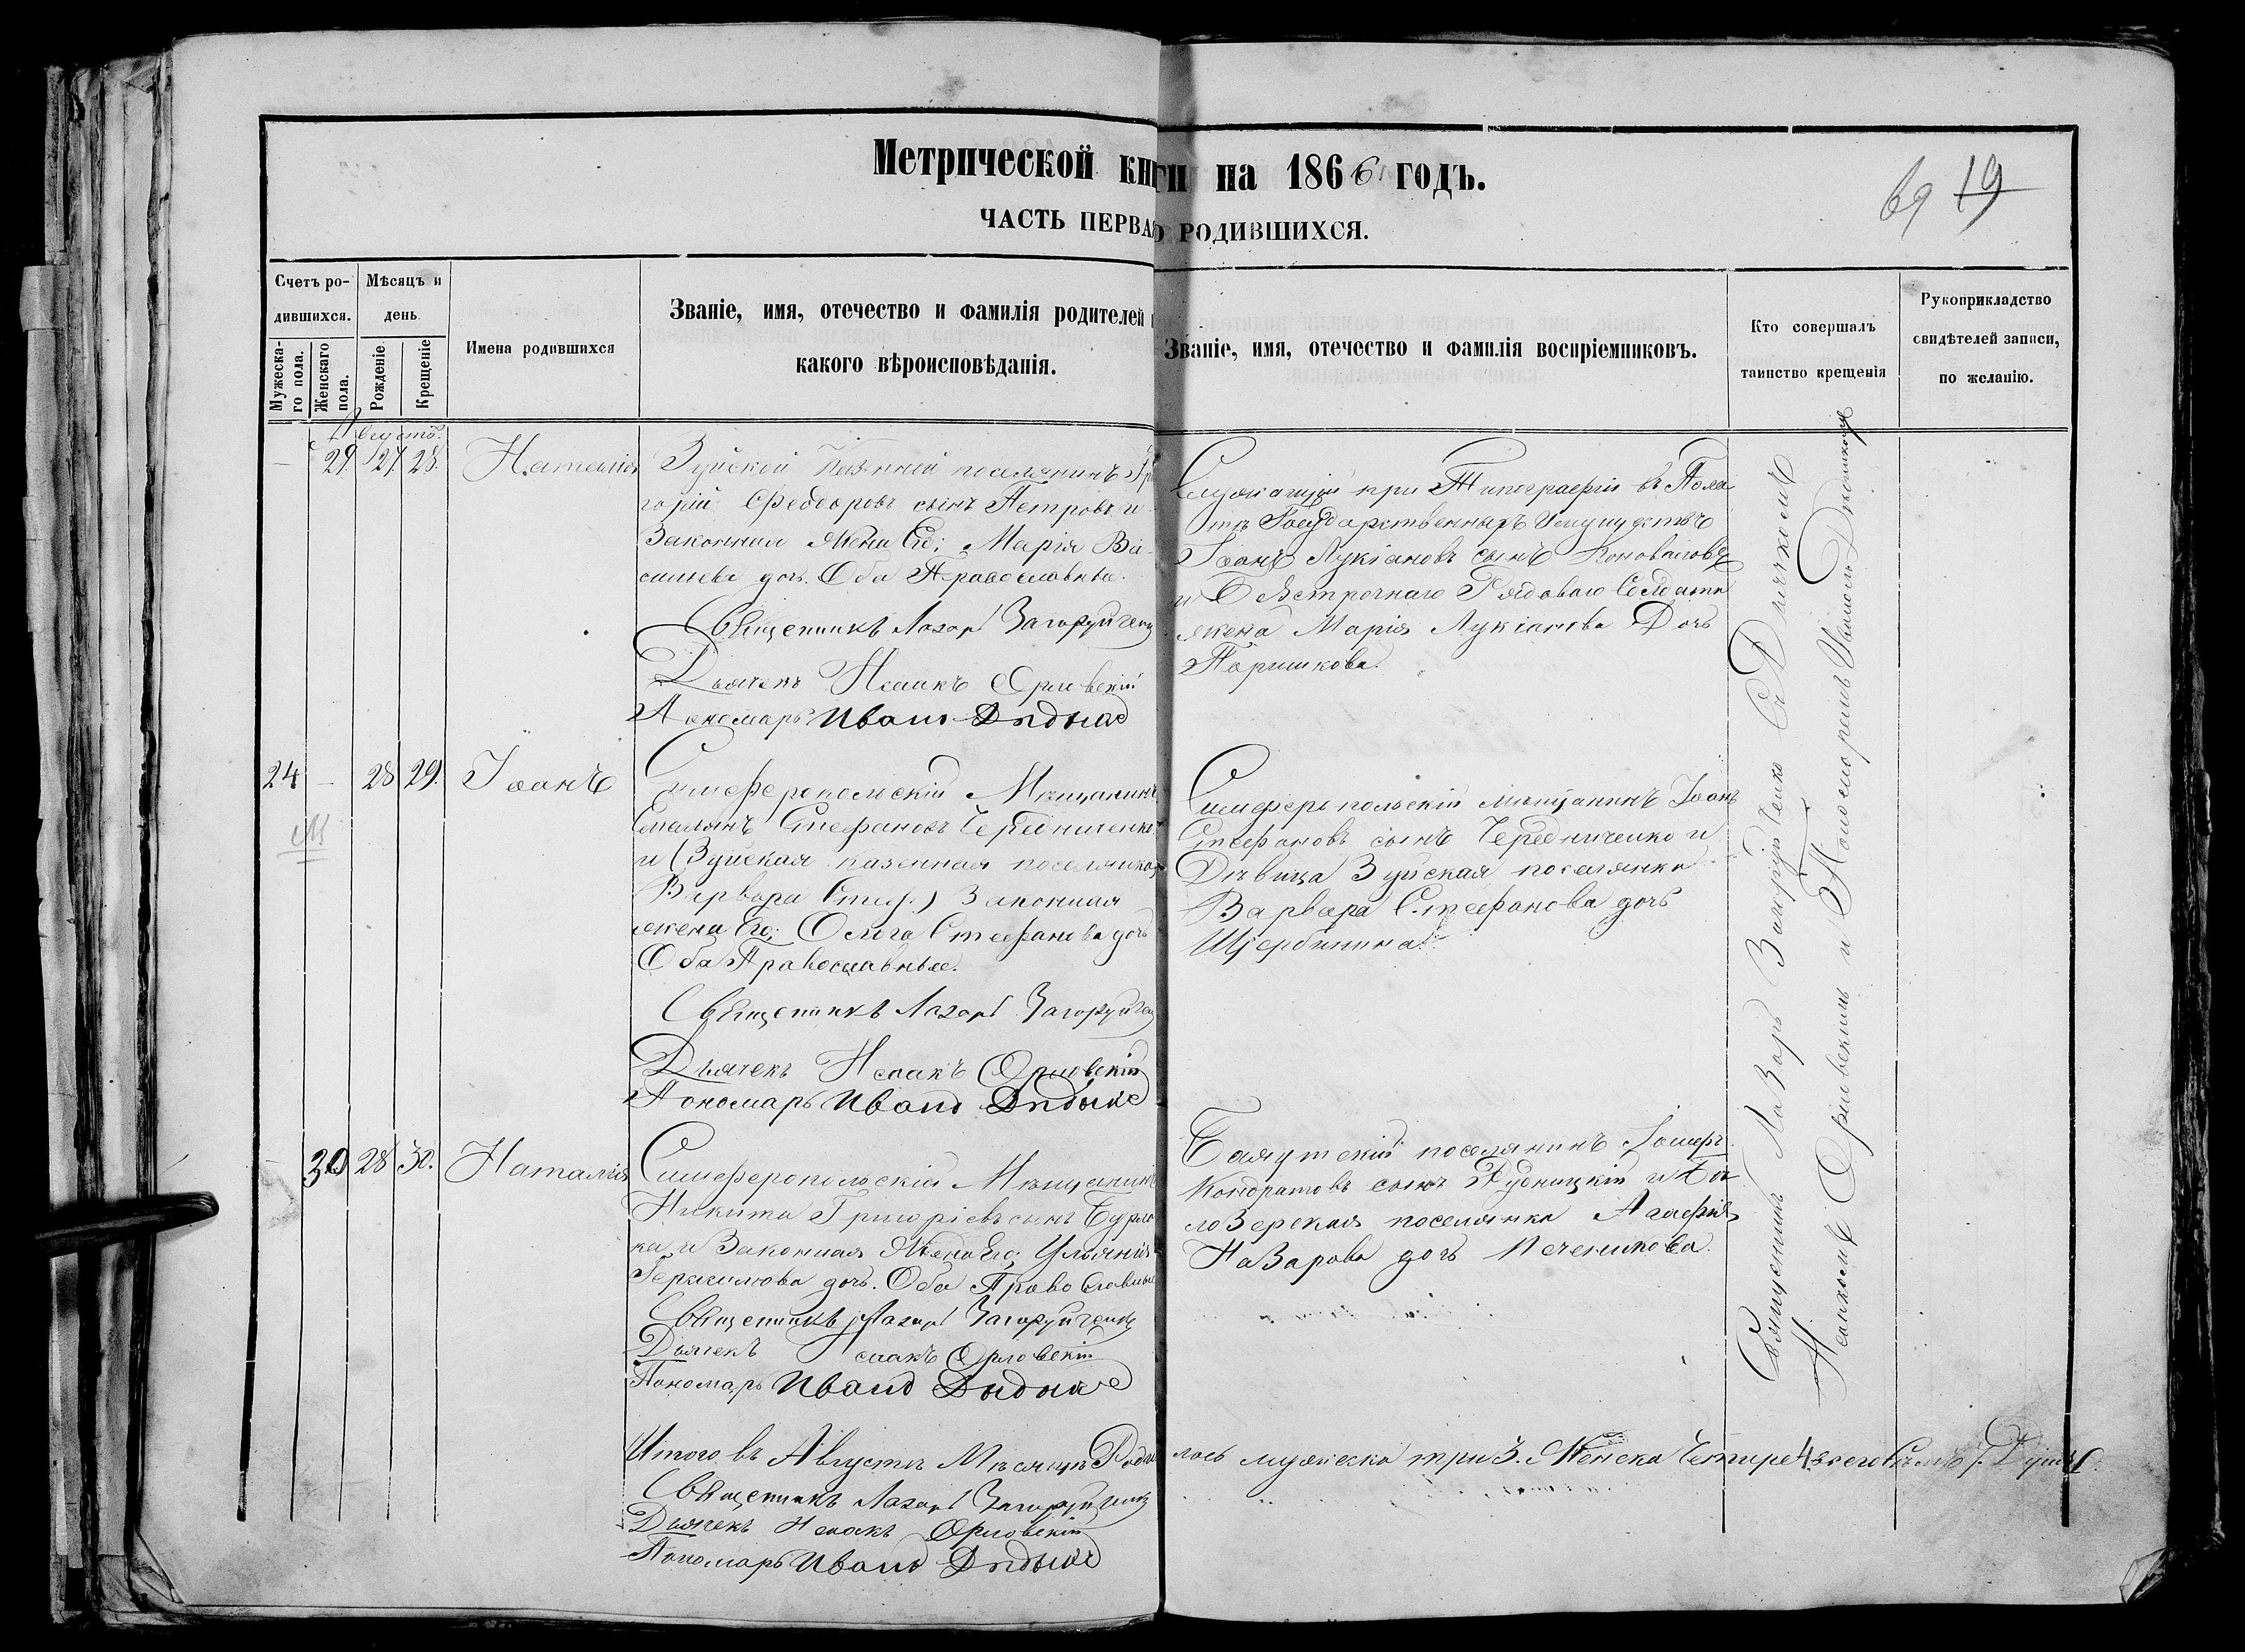 Метрической книги на 1866 годъ.
69 19
ЧАСТЬ ПЕРВАЯ О РОДИВШИХСЯ.
Счетъ родившихся.
Мужескаго пола.
Женскаго пола.
Мѣсяцъ и день
Рожденіе.
Крещеніе
Имена родившихся
Званіе, имя, отечество и фамилія родителей и
какого вѣроисповѣданія.
Званіе, имя, отечество и фамилія воспріемниковъ.
Кто совершалъ
таинство крещенія
Рукоприкладство
свидѣтелей записи,
по желанію.
Августъ.
29 27 28. Наталія
Зуйской поселянинъ Гри
горій Феодоровъ сынъ Петровъ и
Законная Жена Его: Марія Ва
сильева дочь. Оба Православные.
Священникъ Лазарь Загоруйченко
Дьячекъ Исаакъ Орловскій
Пономарь Иванъ
Служащій при Типографіи въ Пала
тѣ Государственныхъ Имуществъ
Іоаннъ Лукіановъ сынъ Коноваловъ
и Рядоваго Солдата
жена Марія Лукіанова Дочь
24 – 28 29. Іоаннъ
Симферопольскій Мѣщанинъ
Емельянъ Стефановъ Чередниченко
и (Зуйская казенная поселянка
Варвара Стеф.) Законная
жена Его: Ольга Стефанова дочь
Оба Православные.
Священникъ Лазарь Загоруйченко
Дьячекъ Исаакъ Орловскій
Пономарь Иванъ
Симферопольскій мѣщанинъ Іоаннъ
Стефановъ сынъ Чередниченко и
Дѣвица Зуйская поселянка
Варвара Стефанова дочь
Щербинина.
30 28 30. Наталія
Симферопольскій Мѣщанинъ
Никита Григоріевъ сынъ
и Законная Жена Его; Ульянія
Герасимова дочь. Оба Православные
Священникъ Лазарь Загоруйченко
Дьячекъ Исаакъ Орловскій
Пономарь Иванъ
поселянинъ
Кондратовъ сынъ Рудницкій и Бѣ
лозерская поселянка Агафія
Назарова дочь Печеникова.
Итого въ Августѣ Мѣсяцѣ Роди
лось мужеска три 3. Женска Четыре 4 всего 7. Душъ.
Священникъ Лазарь Загоруйченко
Дьячекъ Исаакъ Орловскій
Пономарь Иванъ
Священникъ Лазарь Загоруйченко Съ Дьячкомъ
Исаакомъ Орловскимъ и Пономаремъ